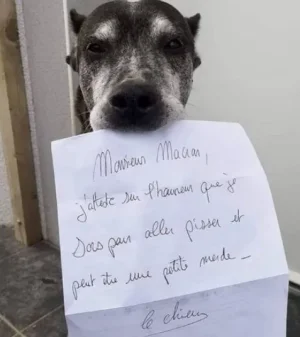 Monsieur Macron,
j'atteste sur l'honneur que je
sors pour aller pisser et
peut être une petite merde_
le chien